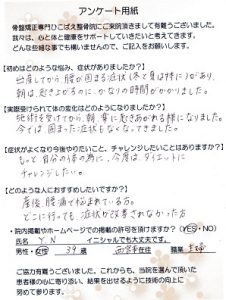 アンケート用紙
骨盤矯正専門ひこばえ整骨院にご来院頂きまして有難うございました。
我々は、心と体と健康をサポートしていきたいと考えてます。
どんな些細な事でも構いませんので、ご記入お願いします。
【初めはどのような悩み、症状がありましたか?】
出産してから腰が固まる症状(冬と夏は特に)があり、
朝は、起き上がるのに、かなりの時間がかかりました。
【実際受けられて体の変化はどのようになりましたか?】
施術を受けてから、朝、楽に起きあがれる様になりました。
今では固まった症状もなくなってきました。
【症状がよくなり今後やりたいこと、チャレンジしたいことはありますか?】
もっと自分の体の為に、今度は、ダイエットに
チャレンジしたい。
【どのような人におすすめしたいですか?】
産後、腰痛で悩まれている方。
どこに行っても、症状が改善されなかった方
・院内掲載やホームページでの掲載の許可を頂けますか?(YES・NO)
氏名 Y N イニシャルでも大丈夫です。
男性・女性 39歳 西宮市在住 職業 主婦
ご協力有難うございました。これからも、当院を選んで頂いた
患者様の心に寄り添い、結果を出せるように技術の向上に
努めて参ります。